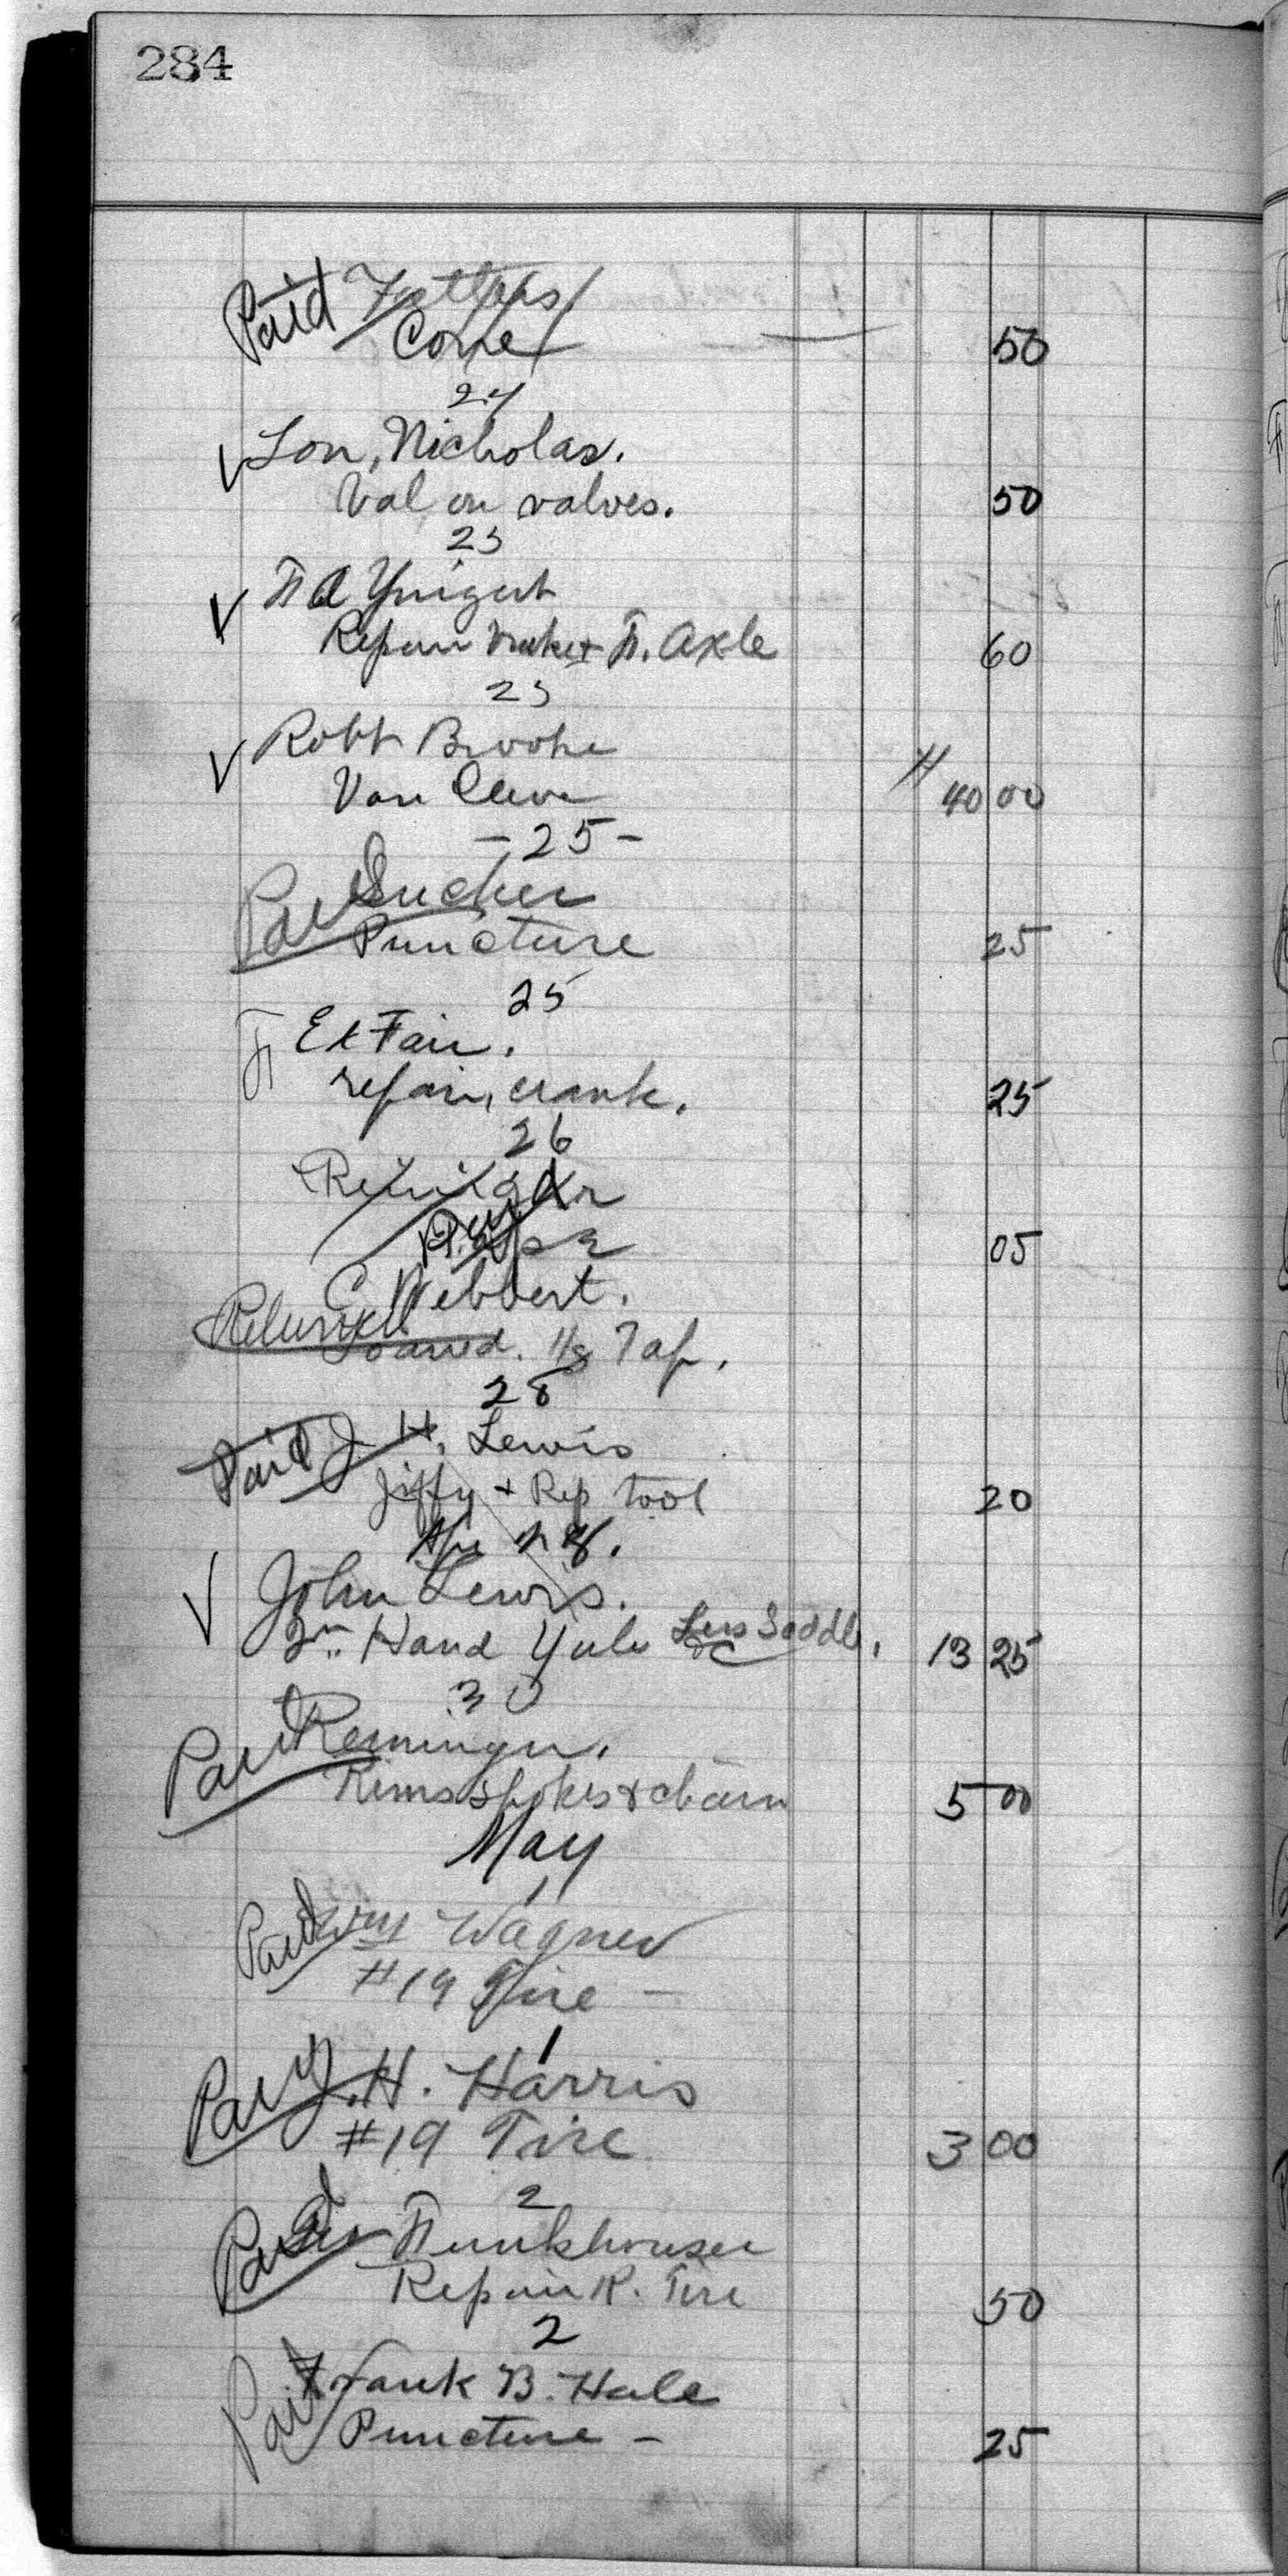 284
Paid
Cone 50
24
Lon, Nicholas.
Val on valves. 50
23
Repair F. Axle 60
23
Robt Brooke
Van Cleve 40 00
- 25 -
Paid
Puncture 25
25
Ex Fair.
repair, crank. 25
26
05
C Webbert.
Returned
Loaned. 1/8 Tap.
28
Paid J. H. Lewis
Jiffy + Rep tool 20
Apr 28.
John Lewis.
2nd Hand Yale Less Saddle, 13 25
30
Paid
Rims spokes & chain 5 00
May
1
Paid Wm Wagner
#19 Tire -
1
Paid J. H. Harris
#19 Tire 3 00
2
Paid Funkhouser
Repair R. Tire 50
2
Paid Frank B. Hale
Puncture - 25